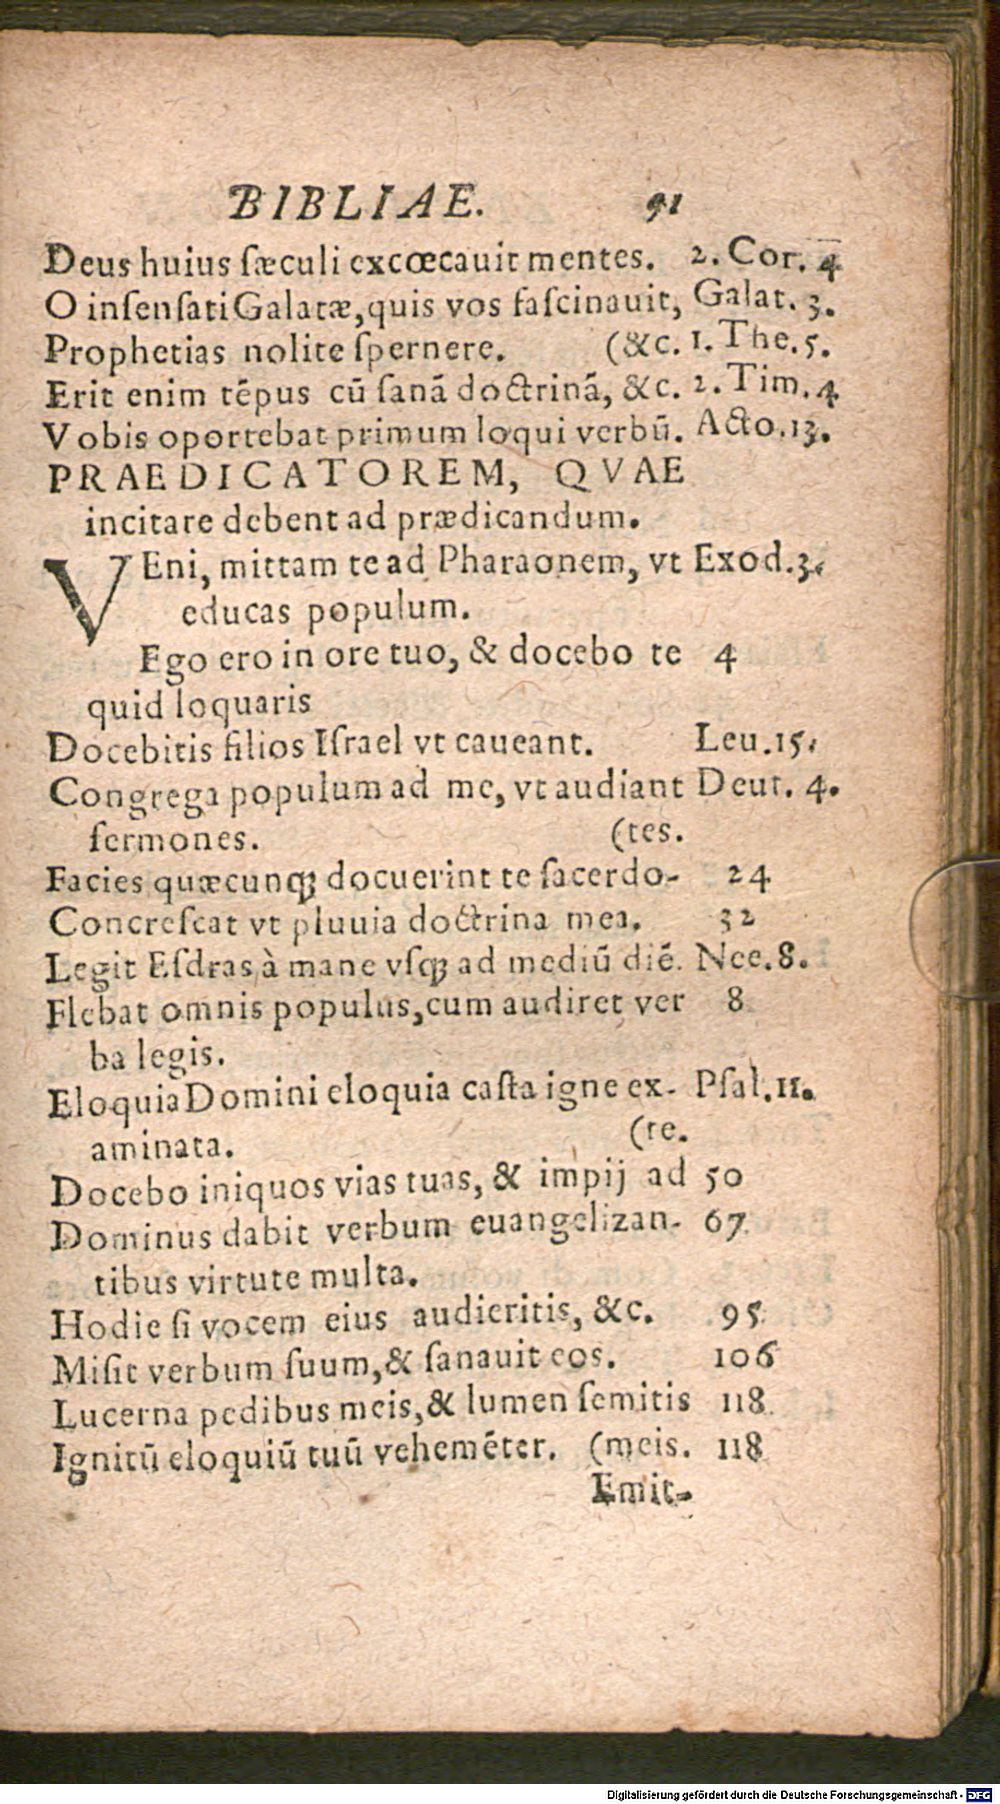 BIBLIAE. 91
Deus huius sæculi excœcauit mentes. 2. Cor. 4
O insensati Galatæ, quis vos fascinauit, Galat. 3.
Prophetias nolite spernere. (&c. 1. The. 5.
Erit enim tēpus cū sanā doctrinā, &c. 2. Tim. 4
Vobis oportebat primum loqui verbū. Acto. 13.
PRAEDICATOREM, QVAE
incitare debent ad prædicandum.
VEni, mittam te ad Pharaonem, vt Exod. 3.
educas populum.
Ego ero in ore tuo, & docebo te 4
quid loquaris
Docebitis filios Israel vt caueant. Leu. 15.
Congrega populum ad me, vt audiant Deut. 4.
sermones. (tes.
Facies quæcunq; docuerint te sacerdo- 24
Concrescat vt pluuia doctrina mea. 32
Legit Esdras à mane vsq; ad mediū diē. Nee. 8.
Flebat omnis populus, cum audiret ver 8
ba legis.
Eloquia Domini eloquia casta igne ex- Psal. 11.
aminata. (te.
Docebo iniquos vias tuas, & impij ad 50
Dominus dabit verbum euangelizan- 67
tibus virtute multa.
Hodie si vocem eius audieritis, &c. 95
Misit verbum suum, & sanauit eos. 106
Lucerna pedibus meis, & lumen semitis 118
Ignitū eloquiū tuū vehemēter. (meis. 118
Emit-
Digitalisierung gefördert durch die Deutsche Forschungsgemeinschaft - DFG